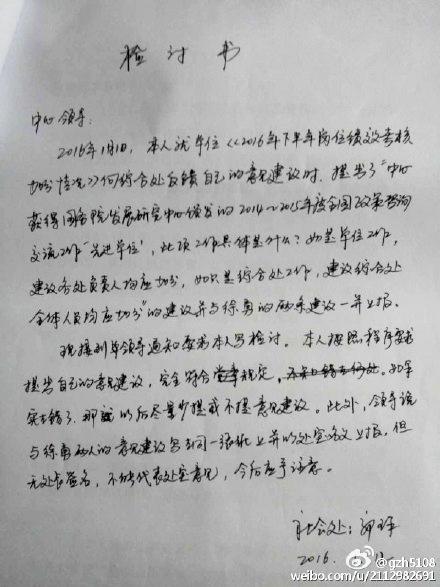 检讨书
中心领导:
2016年1月1日, 本人就单位《2016年下半年岗位绩效考核
加分情况》向综合处反馈自己的意见建议时, 提出了“中心
获得国务院发展研究中心颁发的2014~2015年度全国政策咨询
交流工作“先进单位”, 此项工作具体是什么? 如是单位工作,
建议各处负责人均应加分, 如只是综合处工作, 建议综合处
全体人员均应加分”的建议并与徐勇的两条建议一并上报。
现接到单领导通知要求本人写检讨。本人按照程序要求
提出自己的意见建议, 完全符合规定,
实在错了, 那就以后尽量少提或不提意见建议。此外, 领导说
与徐勇两人的意见建议写在同一张纸上并以处室名义上报, 但
无处长签名, 不能代表处室意见, 今后应予注意。
社会处:
2016.
@gzh5108
weibo.com/u/2112982691